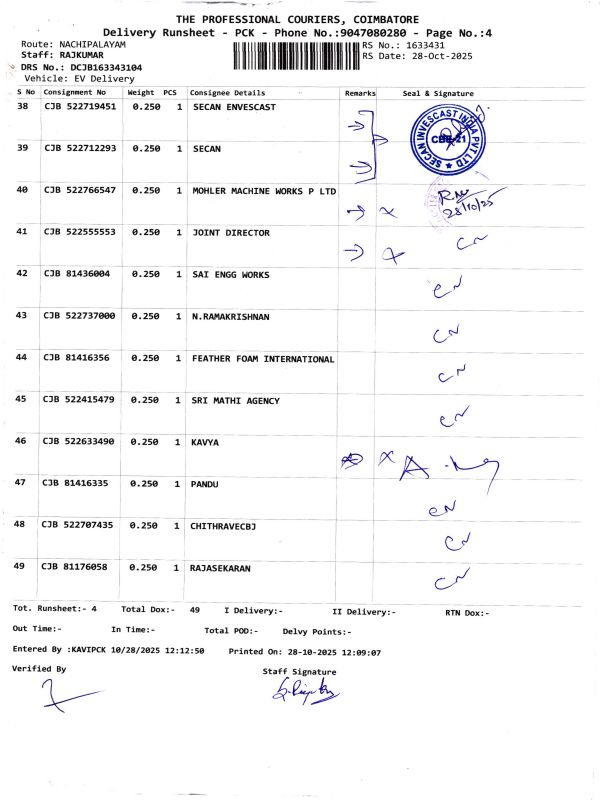 THE PROFESSIONAL COURIERS, COIMBATORE
Delivery Runsheet - PCK - Phone No.:9047080280 - Page No.:4
Route: NACHIPALAYAM RS No.: 1633431
Staff: RAJKUMAR RS Date: 28-Oct-2025
DRS No.: DCJB163343104
Vehicle: EV Delivery
S No Consignment No Weight PCS Consignee Details Remarks Seal & Signature
38 CJB 522719451 0.250 1 SECAN ENVESCAST
SECAN INVESCAST INDIA PVT LTD
CBE-21
39 CJB 522712293 0.250 1 SECAN
40 CJB 522766547 0.250 1 MOHLER MACHINE WORKS P LTD
28/10/25
41 CJB 522555553 0.250 1 JOINT DIRECTOR CN
42 CJB 81436004 0.250 1 SAI ENGG WORKS CN
43 CJB 522737000 0.250 1 N.RAMAKRISHNAN CN
44 CJB 81416356 0.250 1 FEATHER FOAM INTERNATIONAL CN
45 CJB 522415479 0.250 1 SRI MATHI AGENCY CN
46 CJB 522633490 0.250 1 KAVYA
47 CJB 81416335 0.250 1 PANDU CN
48 CJB 522707435 0.250 1 CHITHRAVECBJ CN
49 CJB 81176058 0.250 1 RAJASEKARAN CN
Tot. Runsheet:- 4 Total Dox:- 49 I Delivery:- II Delivery:- RTN Dox:-
Out Time:- In Time:- Total POD:- Delvy Points:-
Entered By :KAVIPCK 10/28/2025 12:12:50 Printed On: 28-10-2025 12:09:07
Verified By Staff Signature